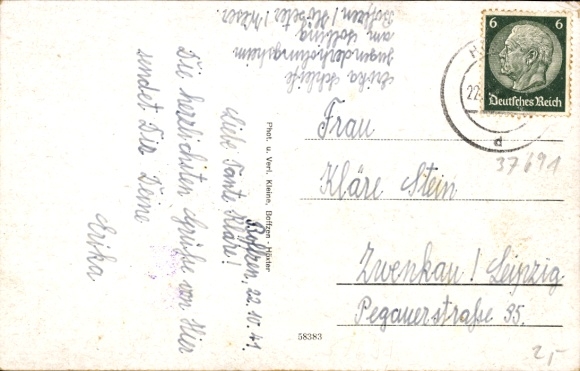 Erika Schleife
Jugenderholungsheim
am Solling
Boffzen / Höxter / Weser.
Boffzen, 22.10.41.
Liebe Tante Kläre!
Die herzlichsten Grüße von Hier
sendet Dir Deine
Erika
Phot. u. Verl. Kleine, Boffzen - Höxter
58383
6 6
Deutsches Reich
22.
d
37691
Frau
Kläre Stein
Zwenkau / Leipzig
Pegauerstraße 35.
2,-